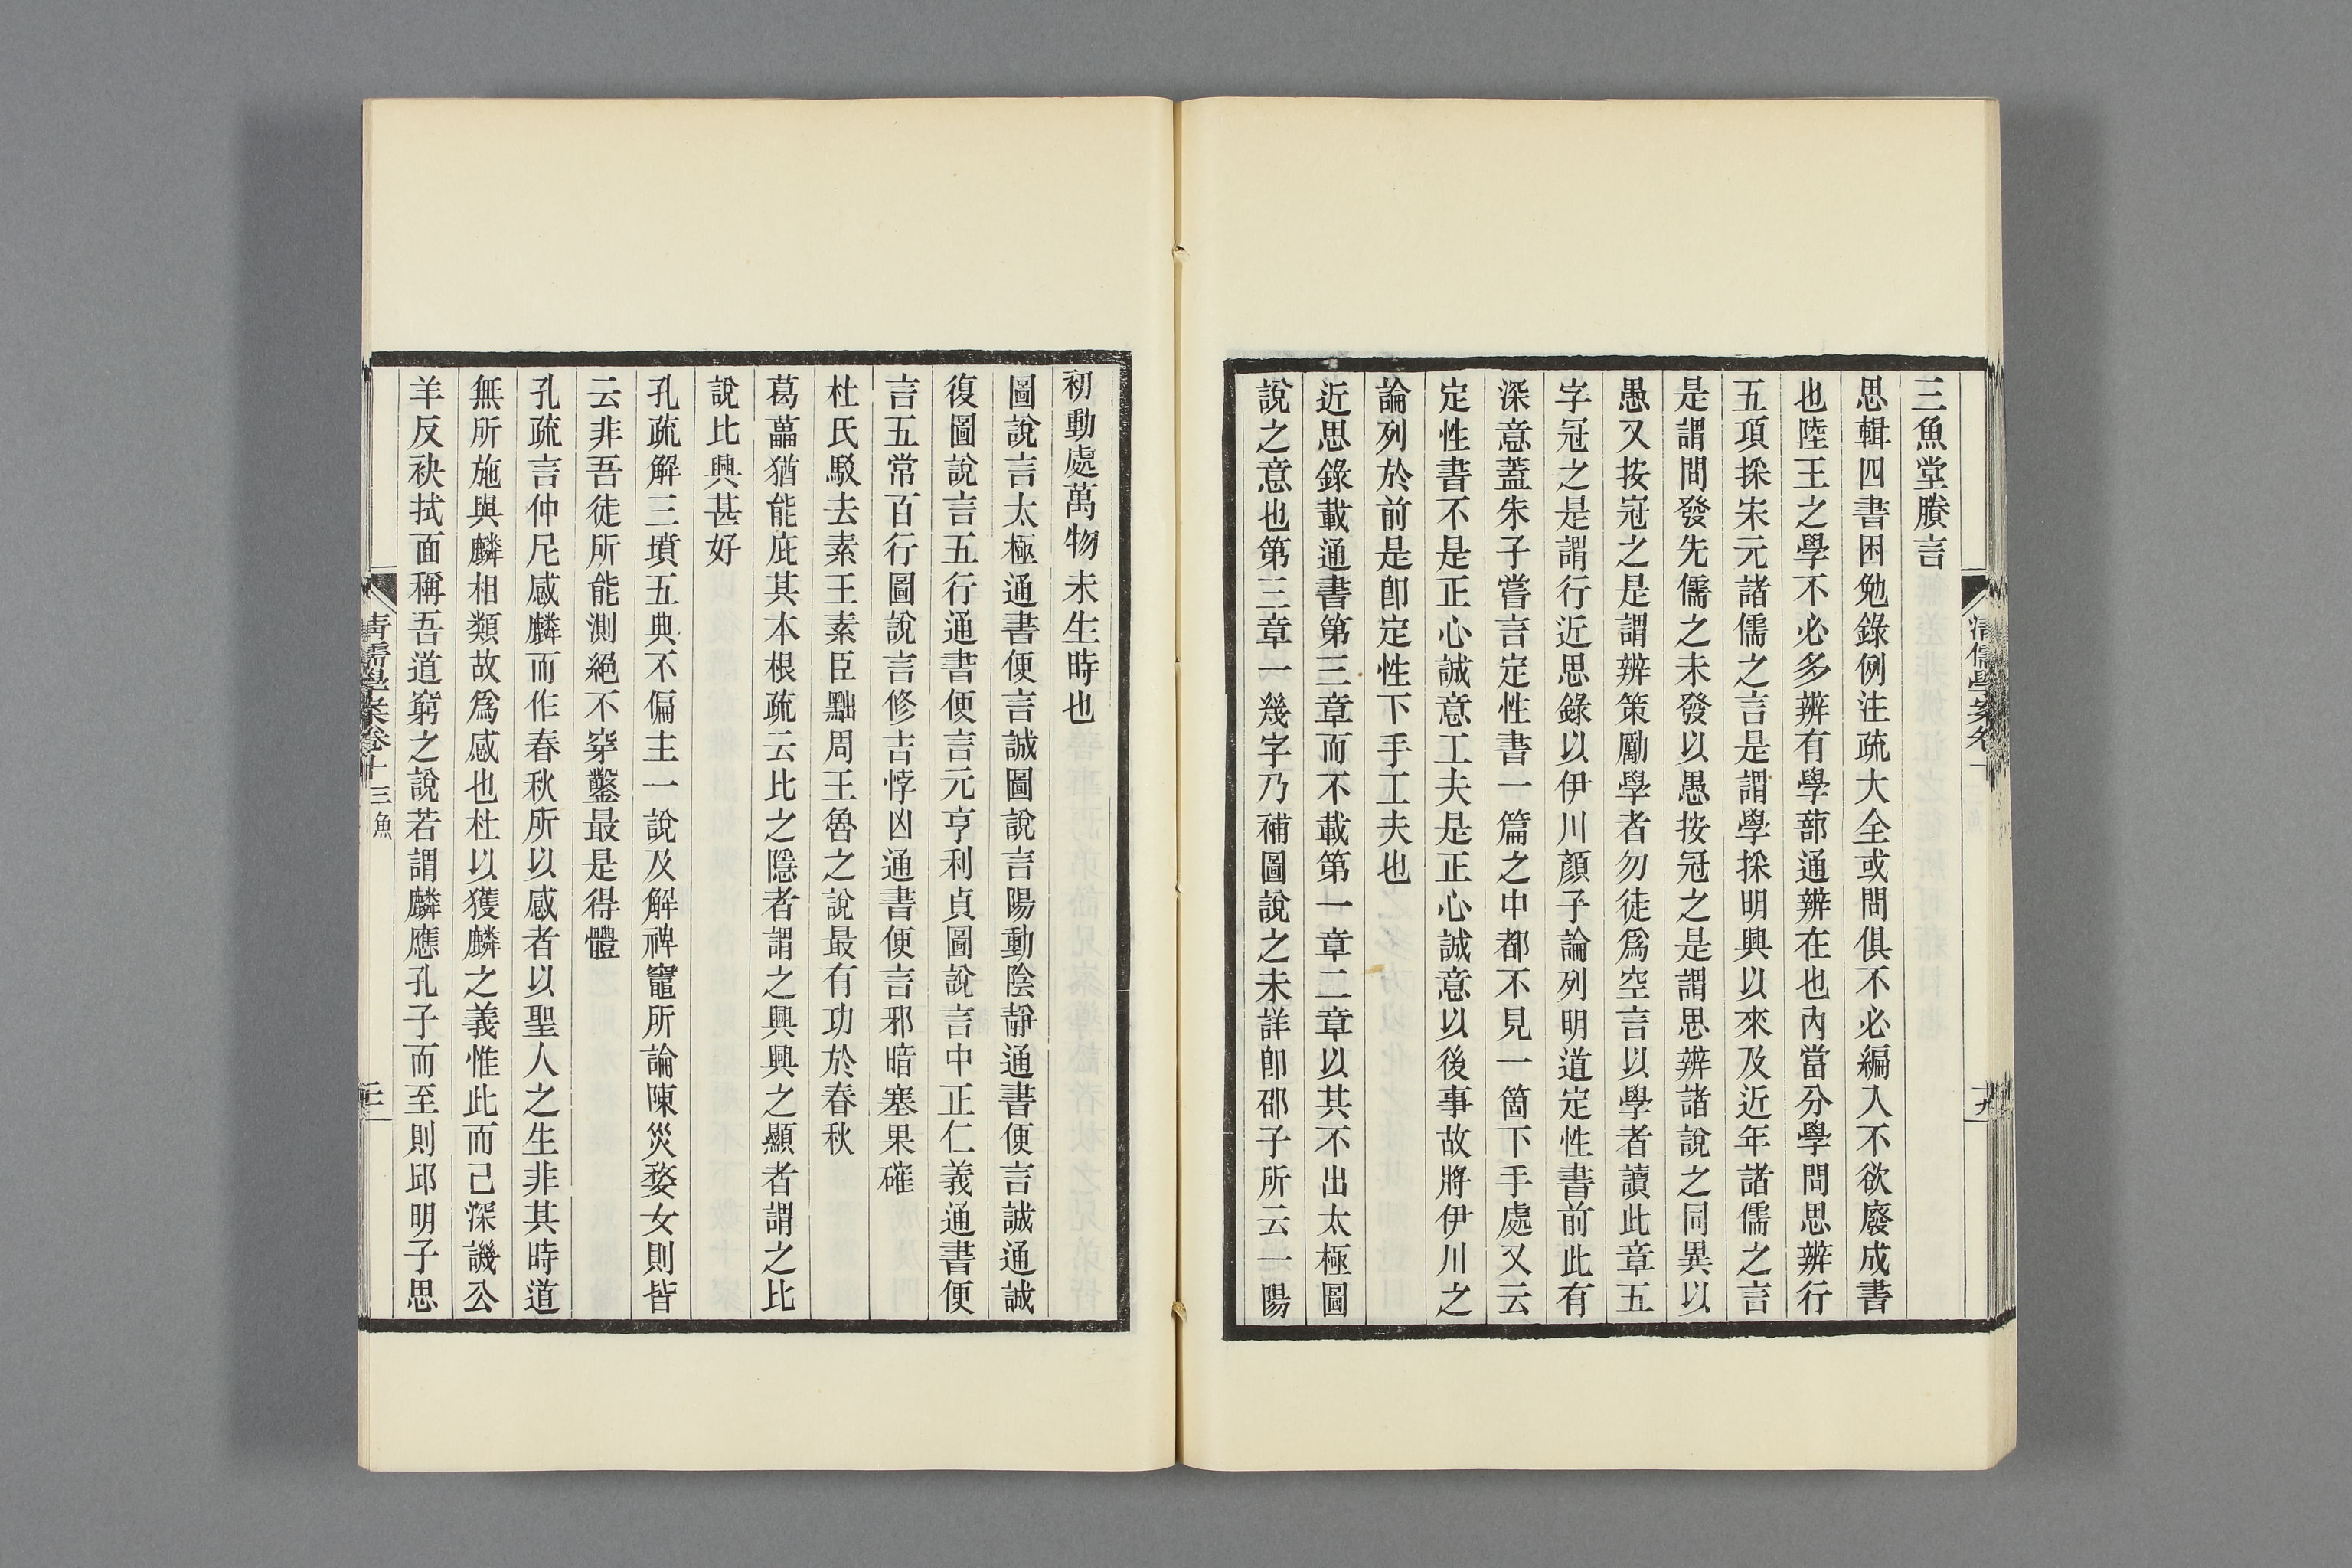 三魚堂賸言
思輯四書困勉錄例注疏大全或問俱不必編入不欲廢成書
也陸王之學不必多辨有學蔀通辨在也內當分學問思辨行
五項採宋元諸儒之言是謂學採明興以來及近年諸儒之言
是謂問發先儒之未發以愚按冠之是謂思辨諸說之同異以
愚又按冠之是謂辨策勵學者勿徒爲空言以學者讀此章五
字冠之是謂行近思錄以伊川顏子論列明道定性書前此有
深意蓋朱子嘗言定性書一篇之中都不見一箇下手處又云
定性書不是正心誠意工夫是正心誠意以後事故將伊川之
論列於前是卽定性下手工夫也
近思錄載通書第三章而不載第一章二章以其不出太極圖
說之意也第三章一幾字乃補圖說之未詳卽邵子所云一陽
初動處萬物未生時也
圖說言太極通書便言誠圖說言陽動陰靜通書便言誠通誠
復圖說言五行通書便言元亨利貞圖說言中正仁義通書便
言五常百行圖說言修吉悖凶通書便言邪暗塞果確
杜氏駁去素王素臣黜周王魯之說最有功於春秋
葛藟猶能庇其本根疏云比之隱者謂之興興之顯者謂之比
說比興甚好
孔疏解三墳五典不偏主一說及解裨竈所論陳災婺女則皆
云非吾徒所能測絕不穿鑿最是得體
孔疏言仲尼感麟而作春秋所以感者以聖人之生非其時道
無所施與麟相類故爲感也杜以獲麟之義惟此而已深譏公
羊反袂拭面稱吾道窮之說若謂麟應孔子而至則邱明子思
清儒學案卷十三魚